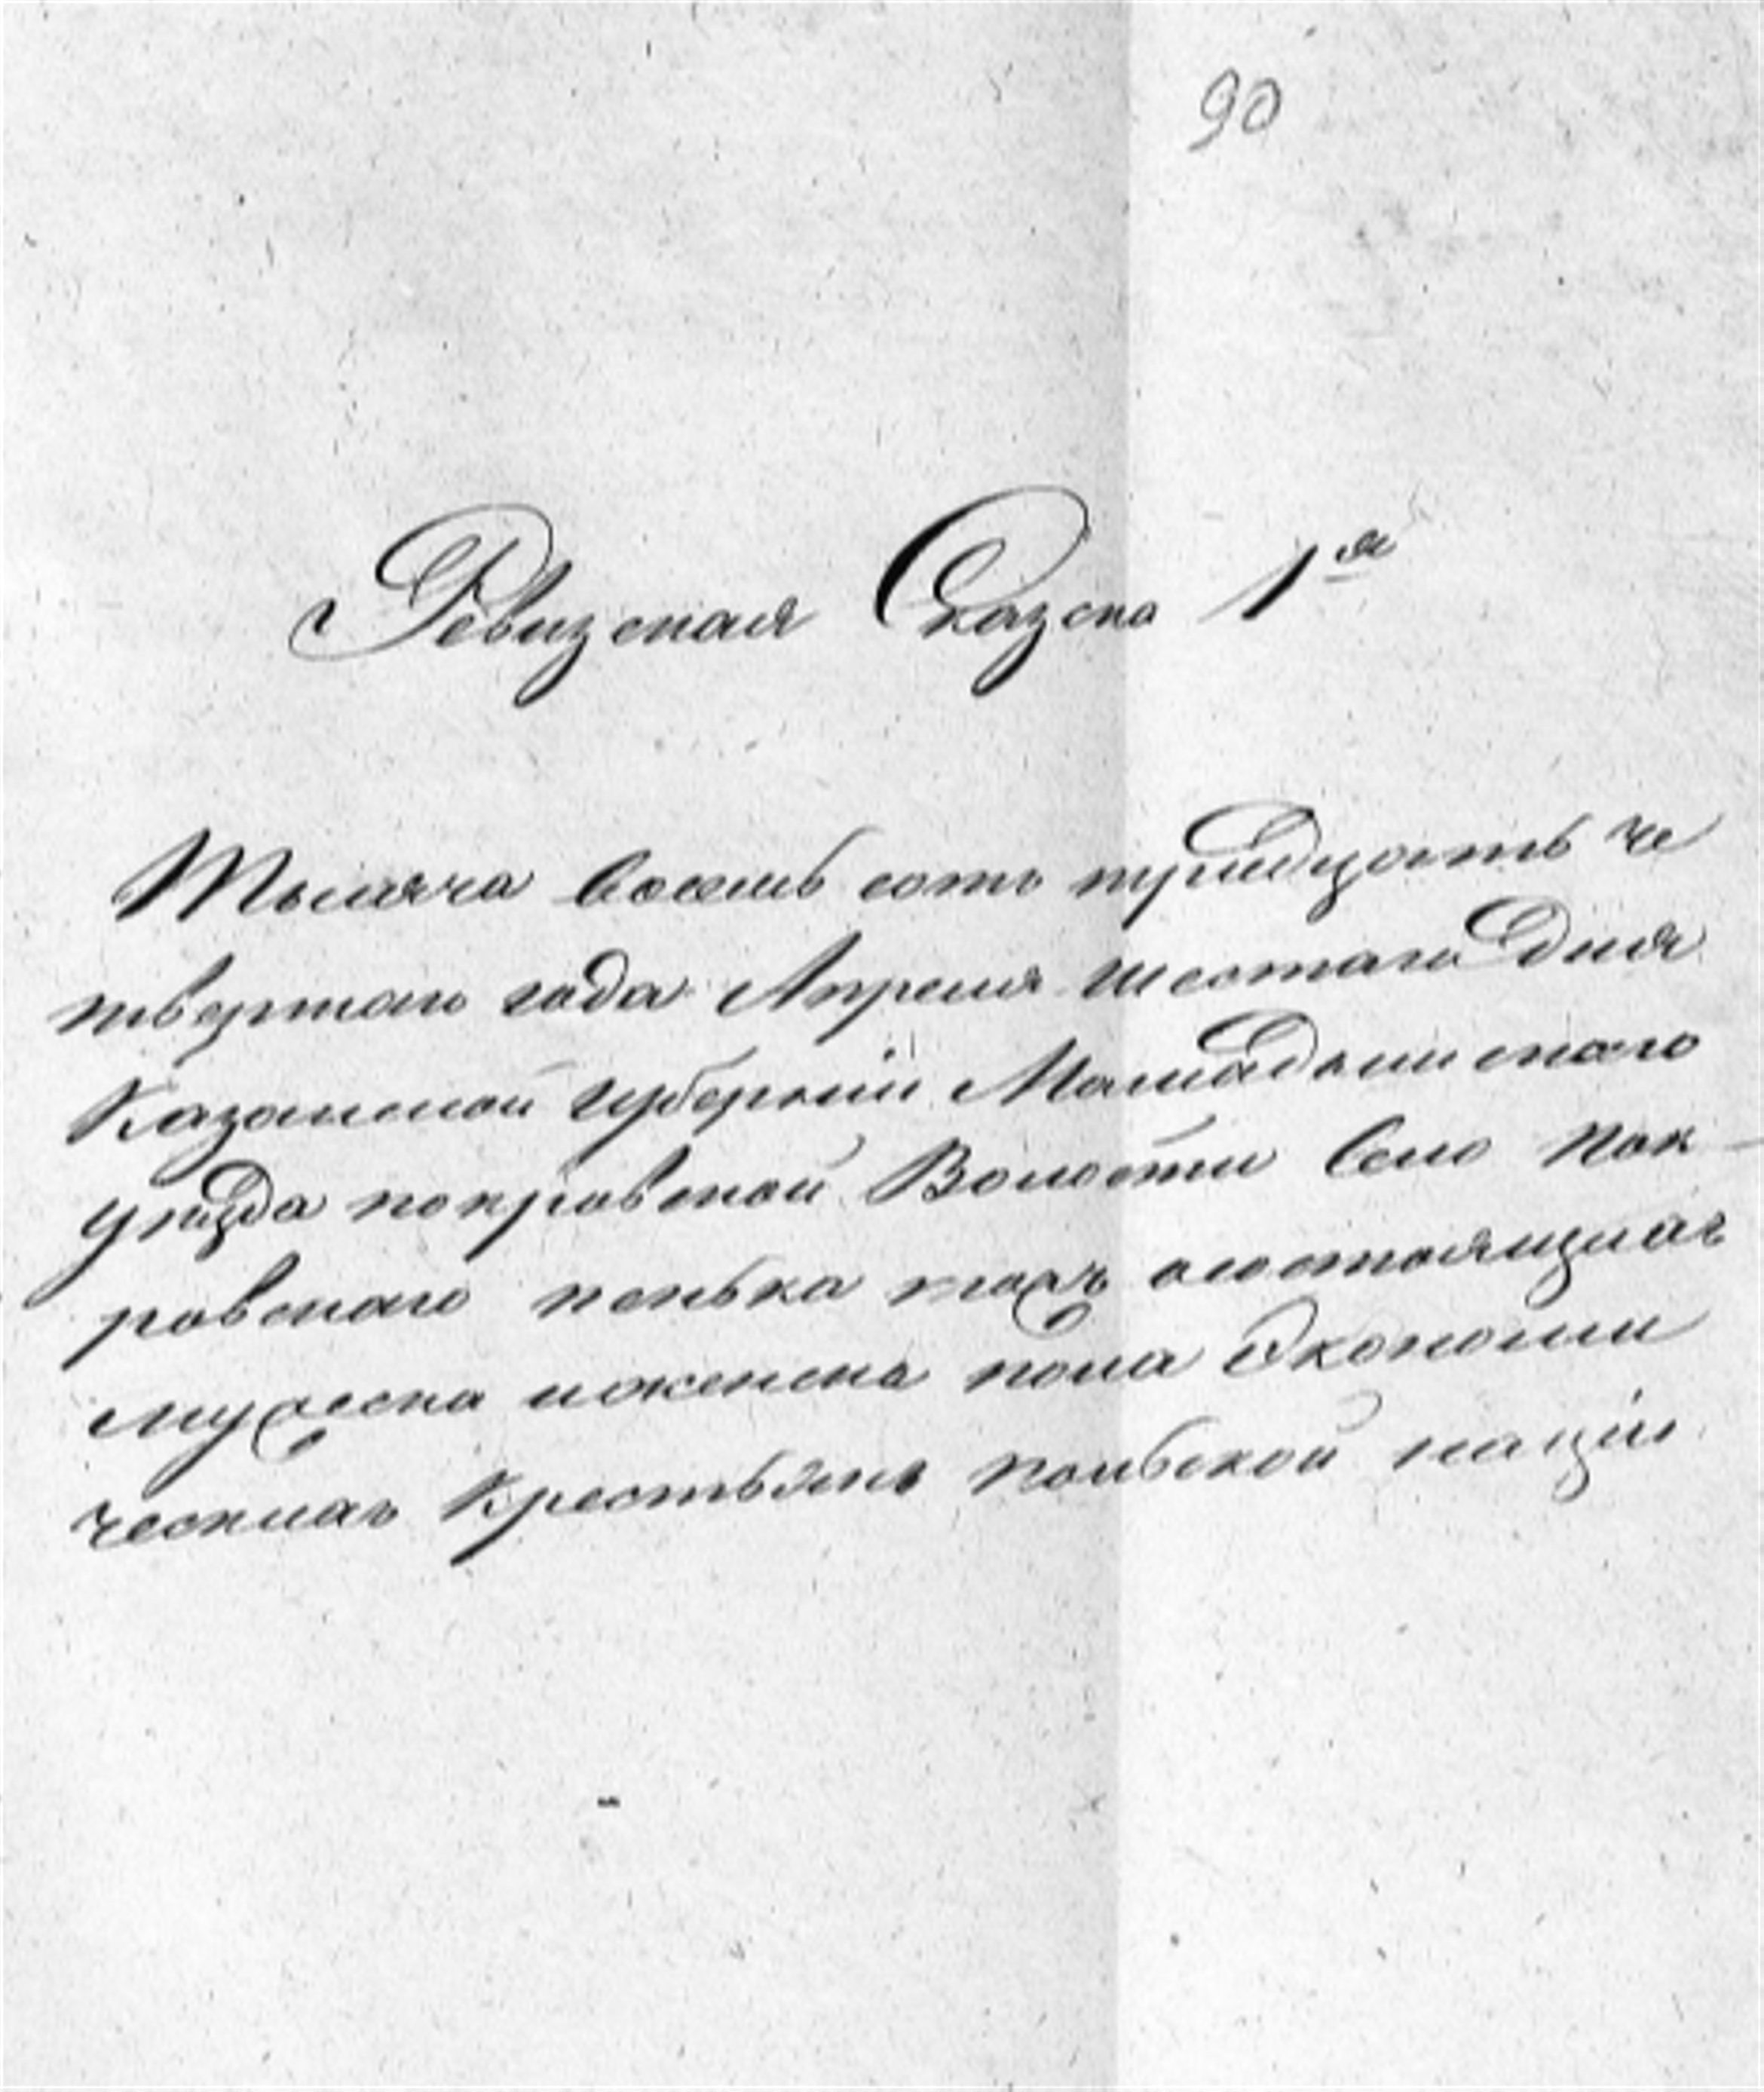 90
Ревизская Сказка 1ая
Тысяча восемь сотъ тридцать че
твертаго года Апреля шестаго дня
Казанской губернии Мамадышскаго
уезда покровской Волости Село пок-
ровскаго
мужеска и женска пола Экономи
ческихъ Крестьянъ польской нации